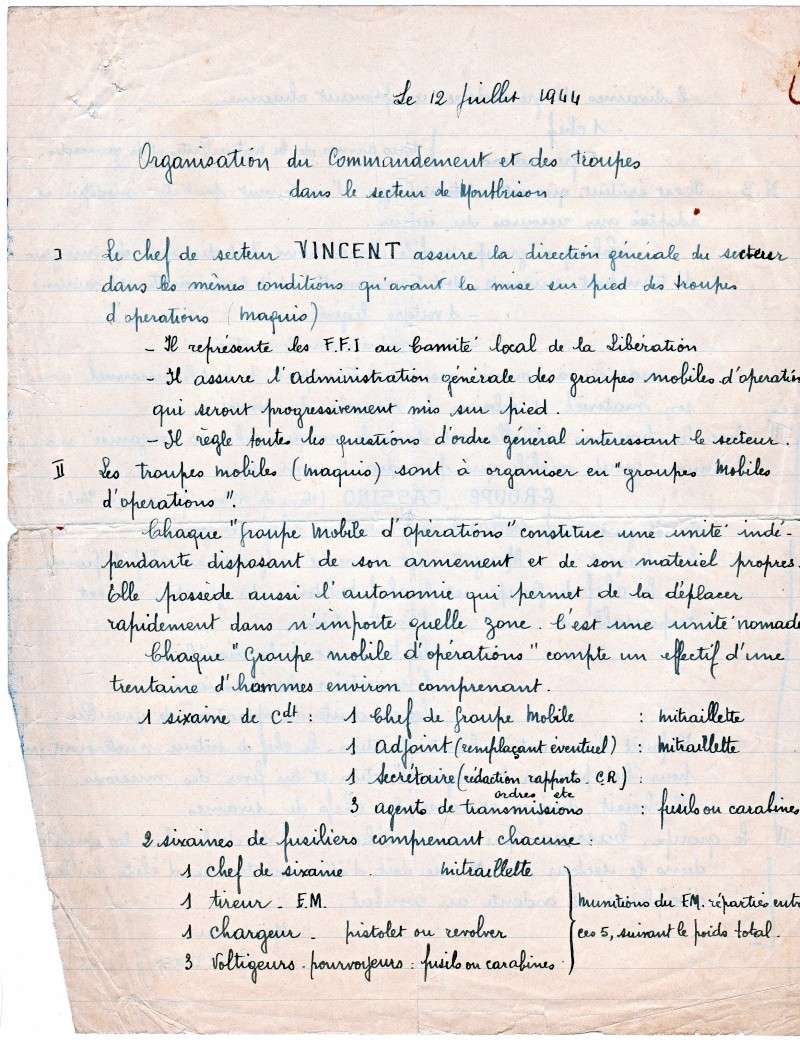 Le 12 Juillet 1944
Organisation du Commandement et des troupes
dans le secteur de Montbrison
I Le chef de secteur VINCENT assure la direction générale du secteur
dans les mêmes conditions qu'avant la mise sur pied des troupes
d'operations (maquis)
- Il représente les F.F.I au Comité local de la Libération
- Il assure l'administration générale des groupes mobiles d'operation
qui seront progressivement mis sur pied.
- Il règle toutes les questions d'ordre général interessant le secteur.
II Les troupes mobiles (maquis) sont à organiser en "groupes Mobiles
d'operations".
Chaque "Groupe Mobile d'opérations" constitue une unité indé-
pendante disposant de son armement et de son materiel propres.
Elle possède aussi l'autonomie qui permet de la déplacer
rapidement dans n'importe quelle zone. C'est une unité nomade
Chaque "Groupe mobile d'opérations" compte un effectif d'une
trentaine d'hommes environ comprenant.
1 sixaine de Cdt : 1 Chef de Groupe Mobile : mitraillette
1 adjoint (remplaçant éventuel) : mitraillette
1 secrétaire (rédaction rapports C.R) :
ordres etc
3 agents de transmissions : fusils ou carabines
2 sixaines de fusiliers comprenant chacune :
1 chef de sixaine . mitraillette
1 tireur - F.M.
1 chargeur - pistolet ou revolver
3 voltigeurs - pourvoyeurs : fusils ou carabines
munitions du F.M. réparties entr
ces 5, suivant le poids total.